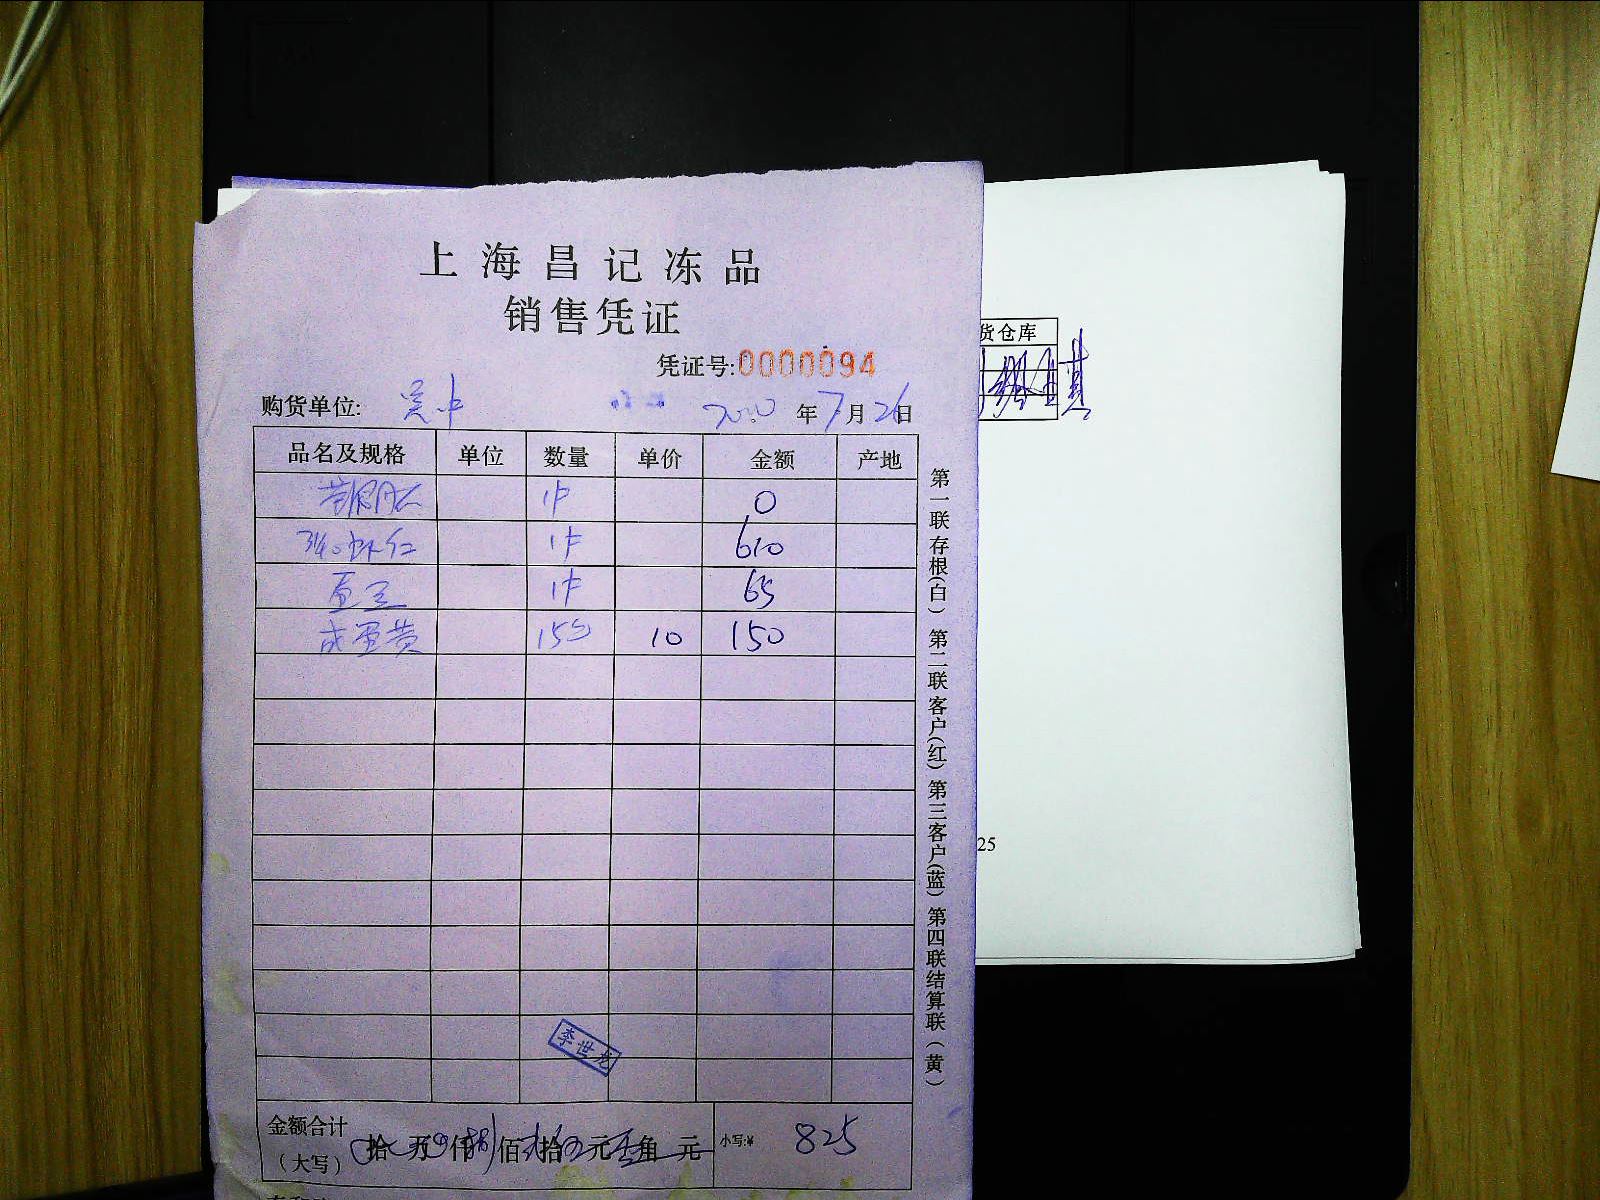 上海昌记冻品
销售凭证
凭证号:0000094
购货单位: 吴中 2020年7月26日
品名及规格 单位 数量 单价 金额 产地
1件 0
340虾仁 1件 610
1件 65
咸蛋黄 15包 10 150
李世龙
金额合计
(大写) 拾 万 仟 捌 佰 贰 拾 伍 元 角 元 小写:¥ 825
第一联存根(白) 第二联客户(红) 第三客户(蓝) 第四联结算联(黄)
货仓库
25